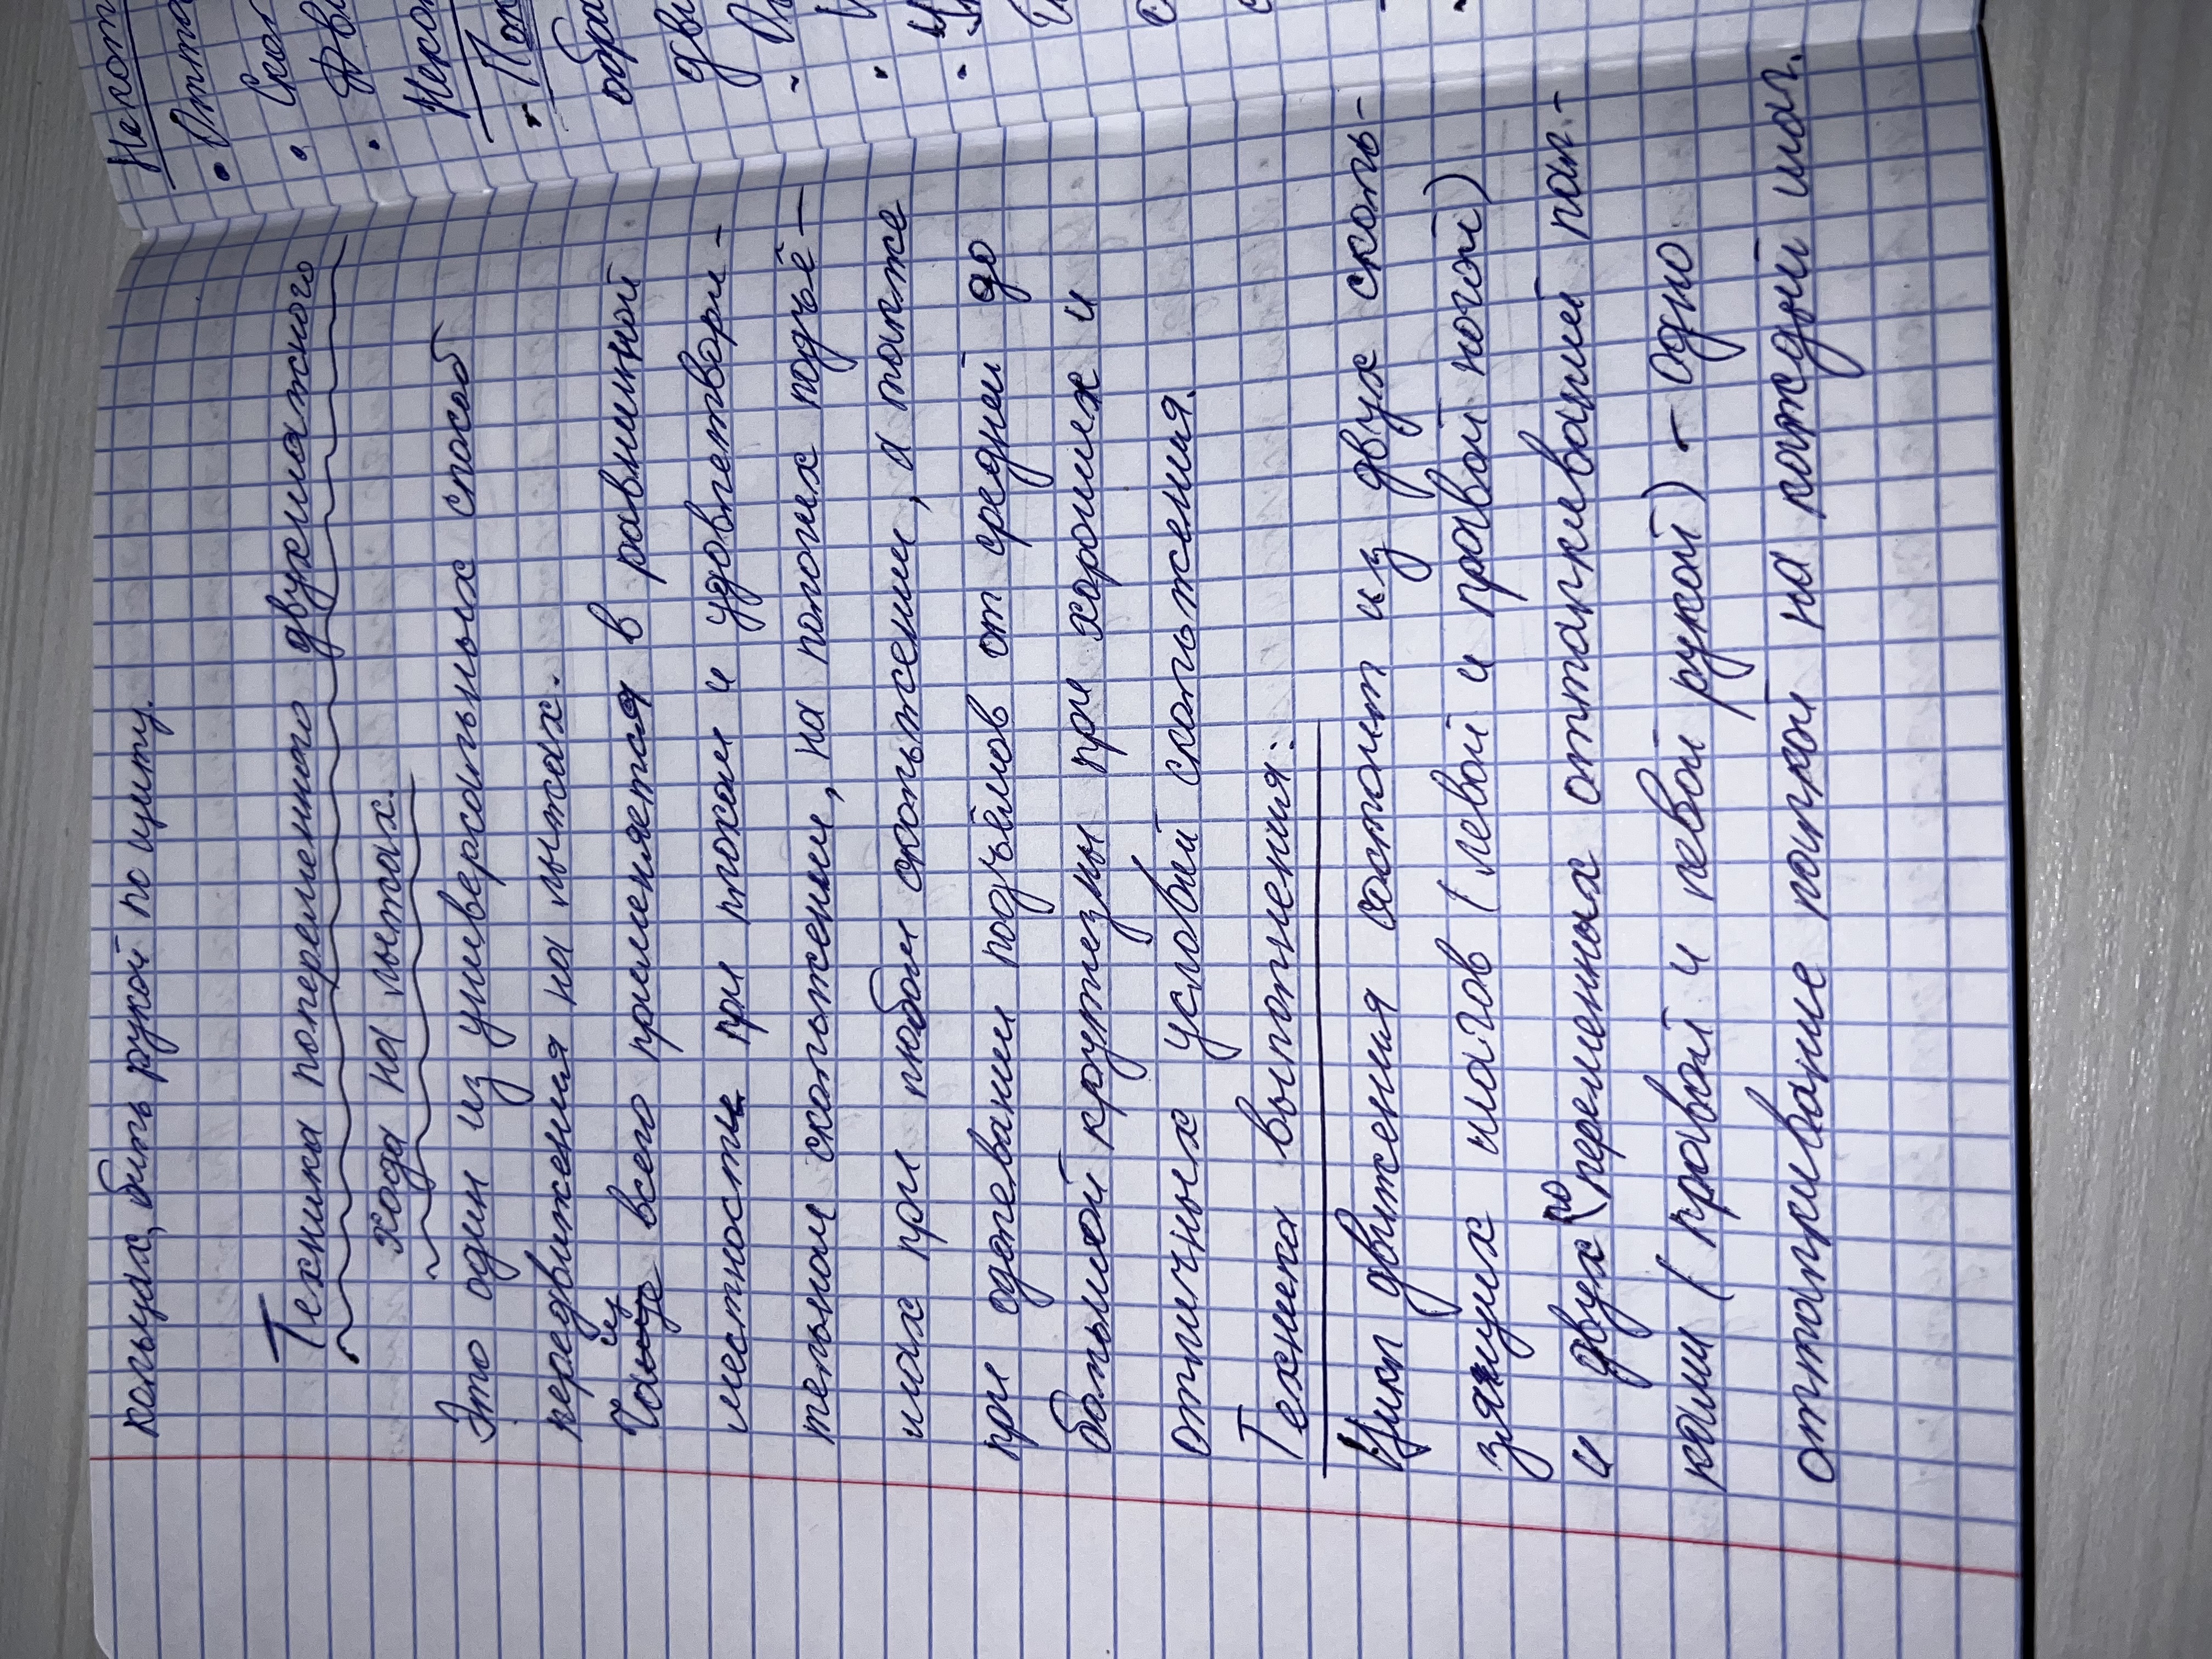 кольцах, бить рукой по щиту.
Техника попеременного двухшажного
хода на лыжах.
Это один из универсальных способ
передвижения на лыжах.
Чаще всего применяется в равнинной
местности при плохом и удовлетвори-
тельном скольжении, на пологих подъё-
мах при любом скольжении, а также
при одолевании подъёмов от средней до
большой крутизны при хороших и
отличных условий скольжения.
Техника выполнения:
Цикл движения состоит из двух сколь-
зящих шагов (левой и правой ногой)
и двух попеременных отталкиваний пал-
ками (правой и левой рукой) - одно
отталкивание палкой на каждый шаг.
Некот
• Отта
• Скол
• Дви
Неко
• Поп
обра
дви